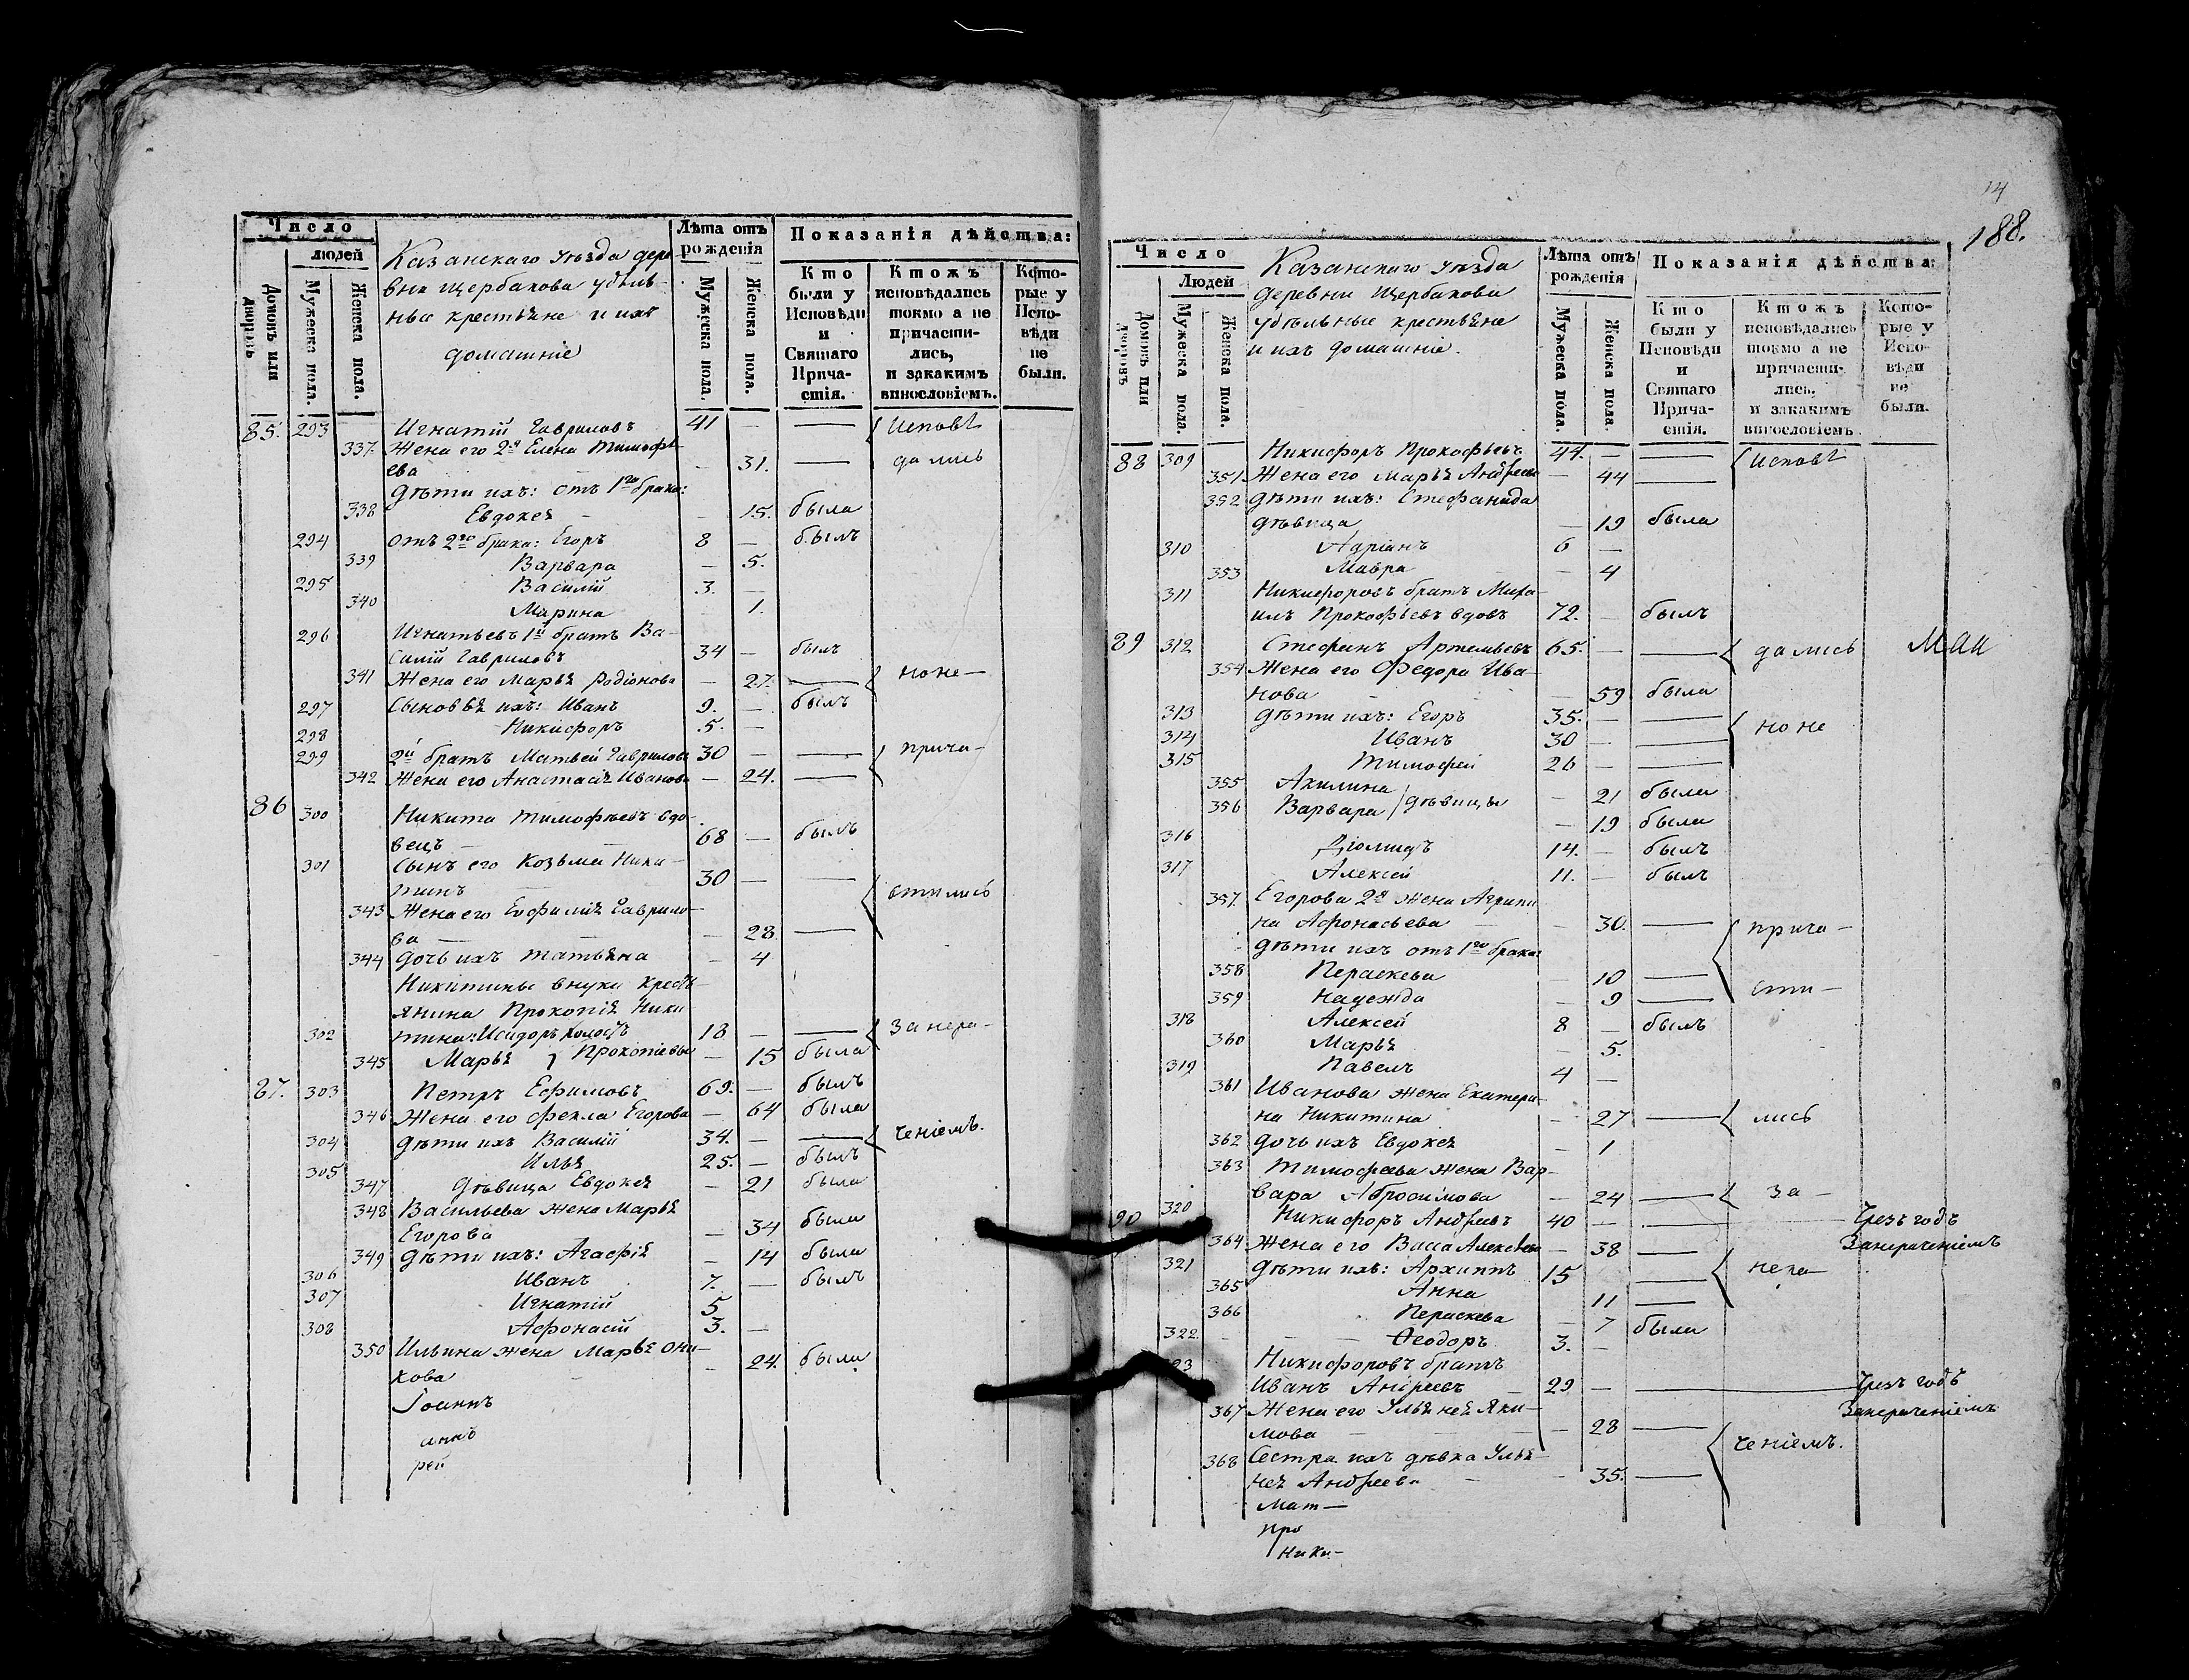 Число
людей
Домовъ или дворовъ
Мужеска пола.
Женска пола.
Казанскаго уѣзда дере
вни Щербакова удѣль-
ные крестьяне и ихъ
домашніе
Лѣта отъ
рожденія
Мужеска пола.
Женска пола.
Показанія дѣйства:
Кто
были у
Исповѣди
и
Святаго
Прича-
стія.
Ктожъ
исповѣдались
токмо а не
причасти-
лись,
и закакимъ
винословіемъ.
Кото-
рые у
Испо-
вѣди
не
были.
85. 293 Игнатій Гавриловъ 41 — — Исповѣ
337. Жена его 2я Елена Тимофѣ
ева — 31. — дались
дѣти ихъ: отъ 1го брака:
338 Евдокея — 15. была
294 отъ 2го брака: Егоръ 8 — былъ
339 Варвара — 5.
295 Василій 3. —
340 Марина — 1.
296 Игнатьевъ 1й братъ Ва-
силій Гавриловъ 34 — былъ
341 Жена его Марья Родіонова — 27. — но не —
297 Сыновья ихъ: Иванъ 9. — былъ
298 Никифоръ 5. —
299 2й братъ Матвей Гавриловъ 30 — — прича-
342 Жена его Анастасія Иванова — 24. —
86 300 Никита Тимофѣевъ вдо-
вецъ — 68 — былъ
301 Сынъ его Козьма Ники-
тинъ 30 — —
343 Жена его Евфимія Гаврило- стились
ва — — 28. —
344 дочь ихъ Татьяна — 4
Никитины внуки крестъ-
янина Прокопія Ники
302 тина: Исидоръ холостъ 18 — — за нера-
345 Марья Прокопіевы — 15 была
87. 303 Петръ Ефимовъ 69. — былъ
346 Жена его Фекла Егорова — 64 была
304 дѣти ихъ Василій 34. — — ченіемъ.
305 Илья 25. — былъ
347 дѣвица Евдокея — 21 была
348 Васильева жена Марья
Егорова — 34 была
349 дѣти ихъ: Агафія — 14 была
306 Иванъ 7. — былъ
307 Игнатій 5
308 Афонасій 3. —
350 Ильина жена Марья Они-
кова — 24. была
Іоаннъ
аннъ
рей
14
188.
Число
Людей
Домовъ или дворовъ
Мужеска пола.
Женска пола.
Казанскаго уѣзда
деревни Щербакова
удѣльные крестьяне
и ихъ домашніе.
Лѣта отъ
рожденія
Мужеска пола.
Женска пола.
Показанія дѣйства:
Кто
были у
Исповѣди
и
Святаго
Прича-
стія.
Ктожъ
исповѣдались
токмо а не
причасти-
лись,
и закакимъ
винословіемъ
Кото-
рые у
Испо-
вѣди
не
были.
88 309 Никифоръ Прокофьевъ 44. — — Исповѣ
351 Жена его Марья Андреева — 44 —
352 дѣти ихъ: Стефанида
дѣвица — 19 была
310 Адріанъ 6 —
353 Мавра — 4
311 Никифоровъ братъ Миха-
илъ Прокофьевъ вдовъ 72. — былъ
89 312 Стефанъ Артемьевъ 65. — — дались
354 Жена его Федора Ива-
нова — 59 была
313 дѣти ихъ: Егоръ 35. — —
314 Иванъ 30 — — но не
315 Тимофей 26 — —
355 Акилина — 21 была
356 Варвара дѣвицы — 19 была
316 Діомидъ 14. — былъ
317 Алексей 11. — былъ
357. Егорова 2я жена Агрипи
на Афонасьева — — 30. — прича —
дѣти ихъ отъ 1го брака:
358 Пераскева — 10 —
359 Надежда — 9 — сти —
318 Алексей 8 — былъ
360 Марья — 5.
319 Павелъ 4 —
361 Иванова жена Екатери-
на Никитина — 27 — лись
362 дочь ихъ Евдокея — 1
363 Тимофеева жена Вар-
вара Абросимова — 24 — за —
90 320 Никифоръ Андреевъ 40 — — Чрезъ годъ
Занераченіемъ
364 Жена его Васса Алексеева — 38 —
321 дѣти ихъ: Архиппъ 15 — нера —
365 Анна 11 —
366 Пераскева — 7 была
322. Феодоръ 3. —
323 Никифоровъ братъ
Иванъ Андреевъ — 29 — Чрезъ годъ
Занераченіемъ
367 Жена его Ульянея Яки-
мова — 28 — ченіемъ.
368 Сестра ихъ дѣвка Улья
нея Андреева — — 35. —
Мат —
про
Ники-